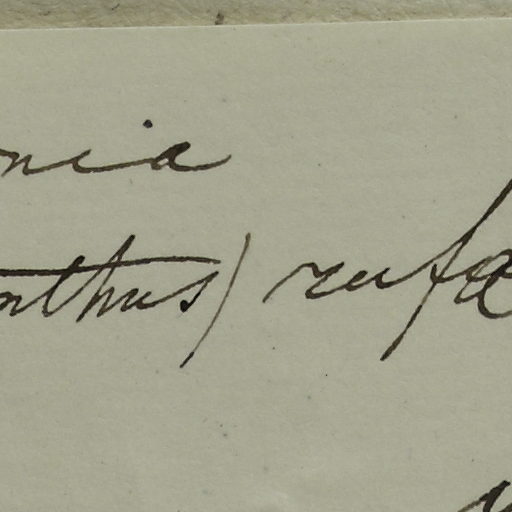 nia
nthus) rufa